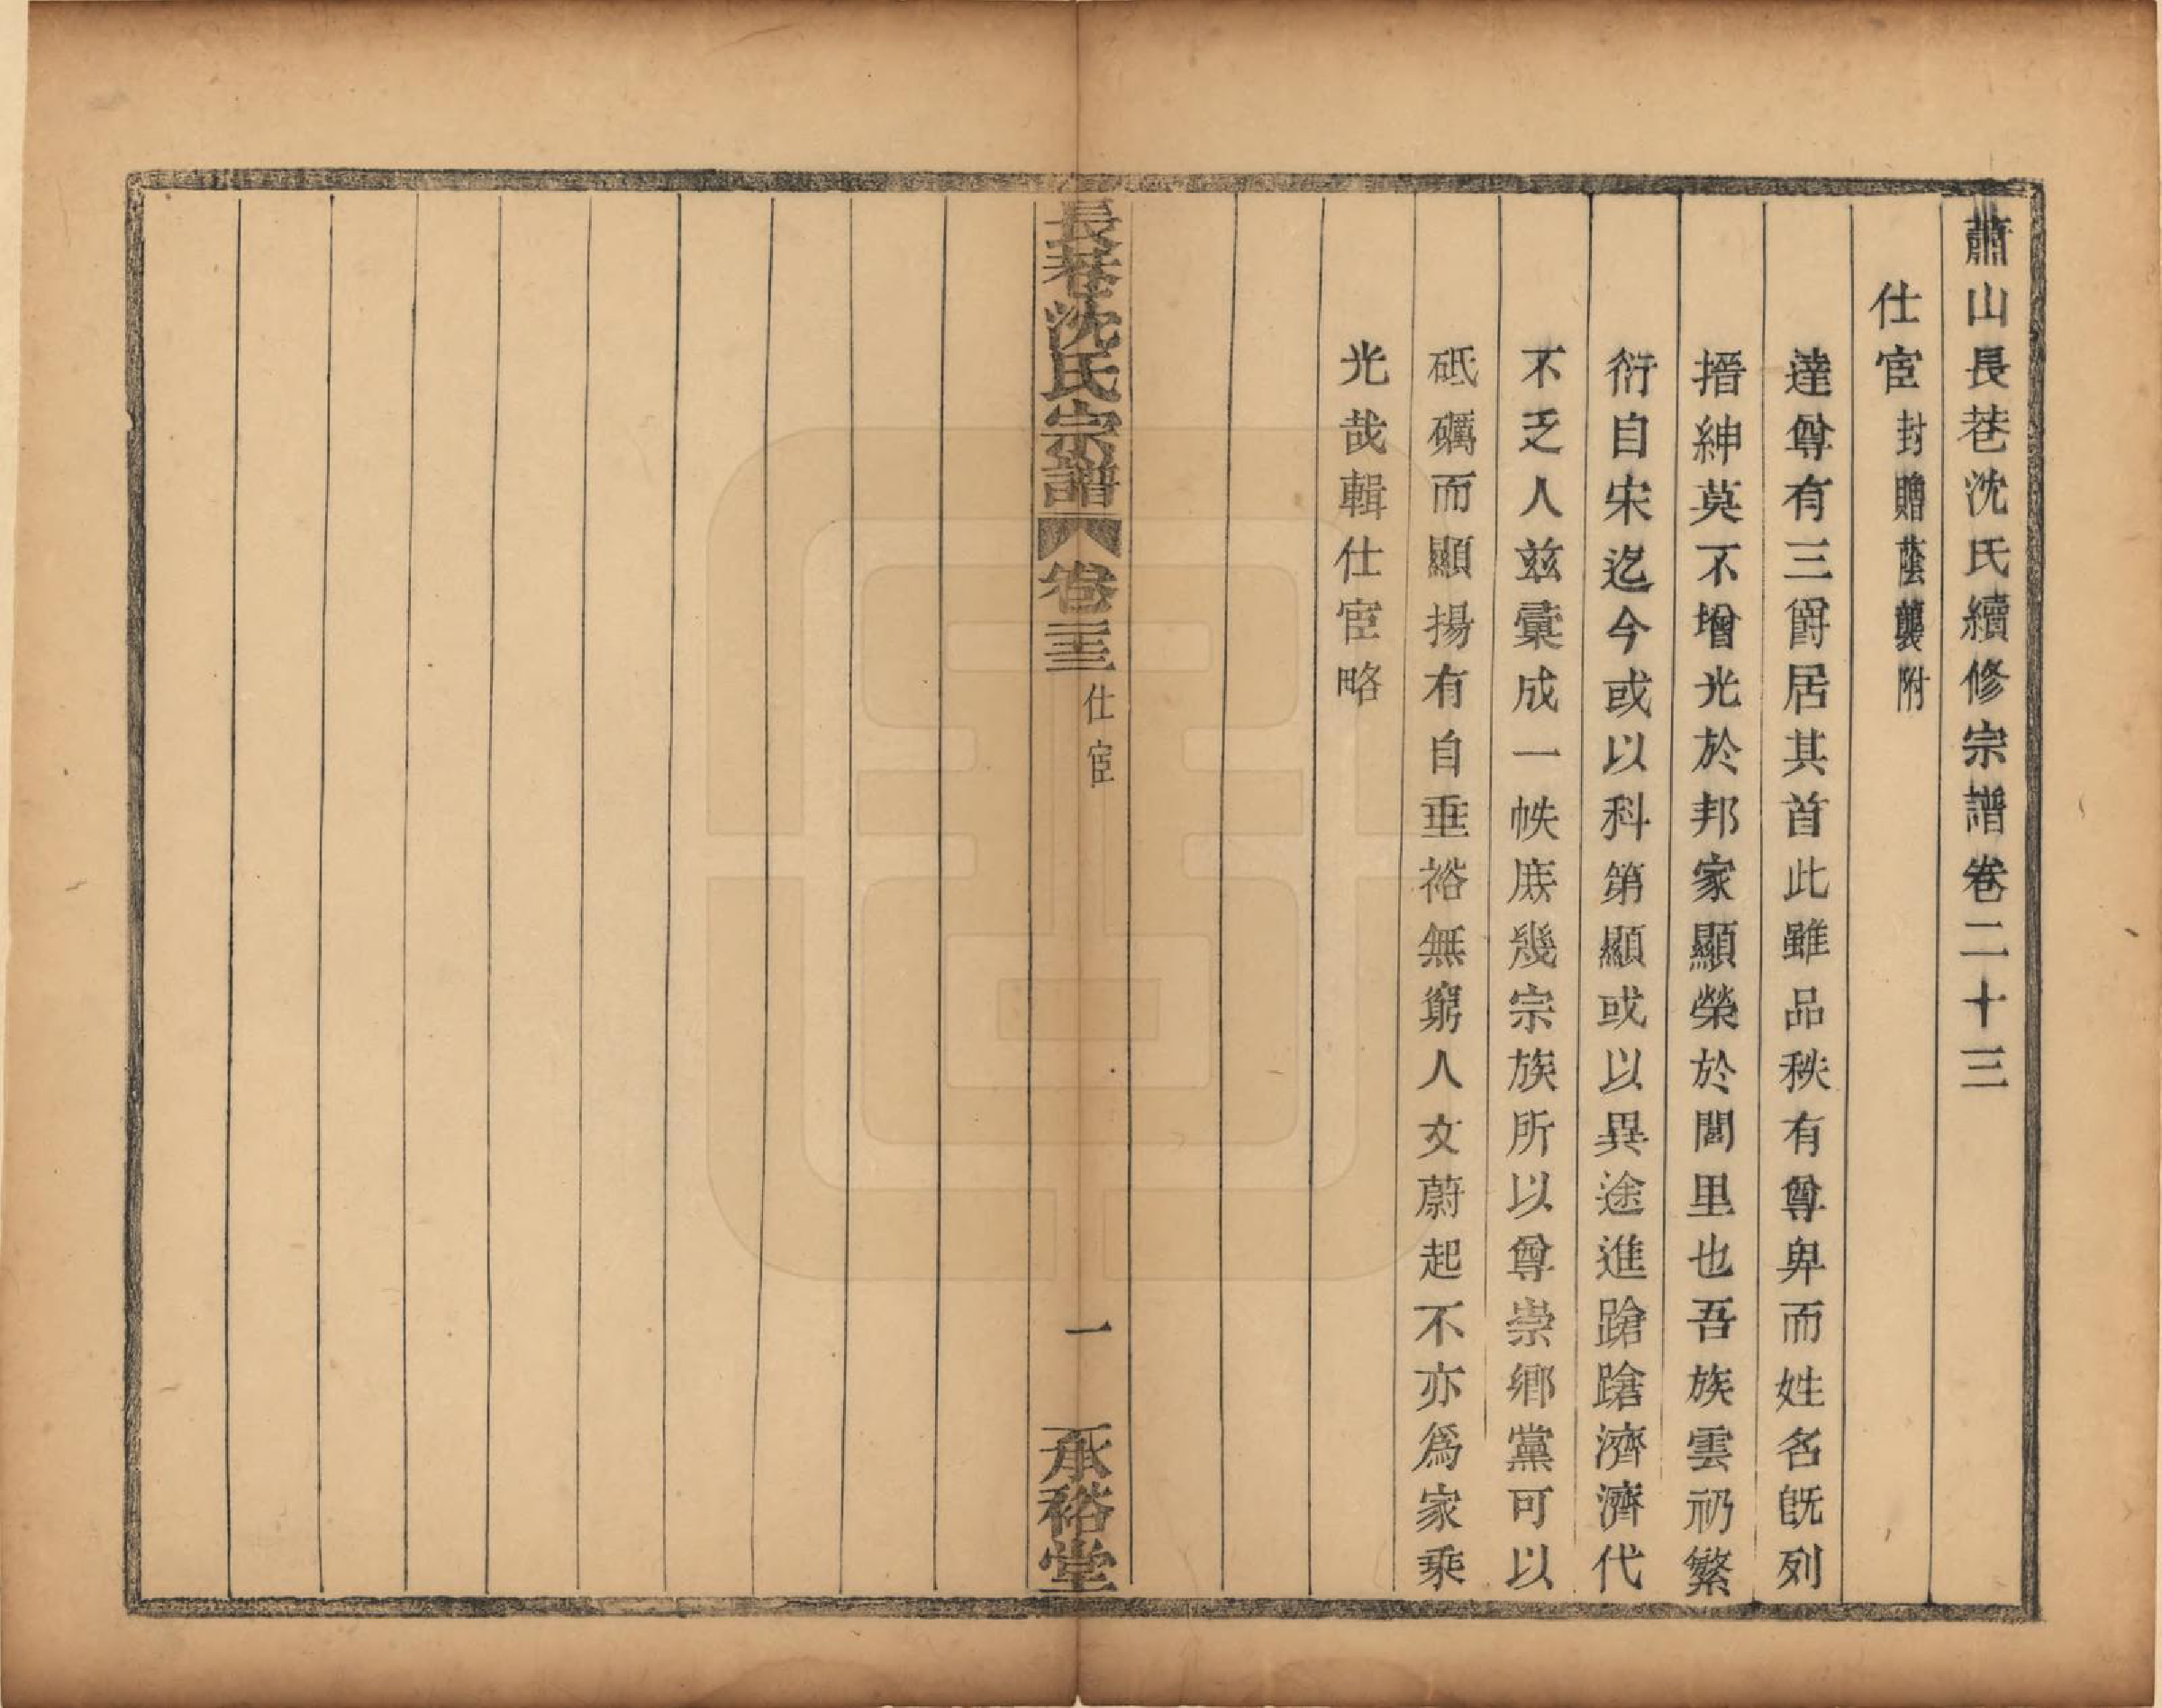 蕭山長巷沈氏續修宗譜卷二十三
仕宦封贈蔭襲附
達尊有三爵居其首此雖品秩有尊卑而姓名旣列
搢紳莫不增光於邦家顯榮於閭里也吾族雲礽繁
衍自宋迄今或以科第顯或以異途進蹌蹌濟濟代
不乏人兹彙成一帙庶幾宗族所以尊崇鄉黨可以
砥礪而顯揚有自垂裕無窮人文蔚起不亦爲家乘
光哉輯仕宦略
長巷沈氏宗譜 卷二十三 仕宦 一 承裕堂